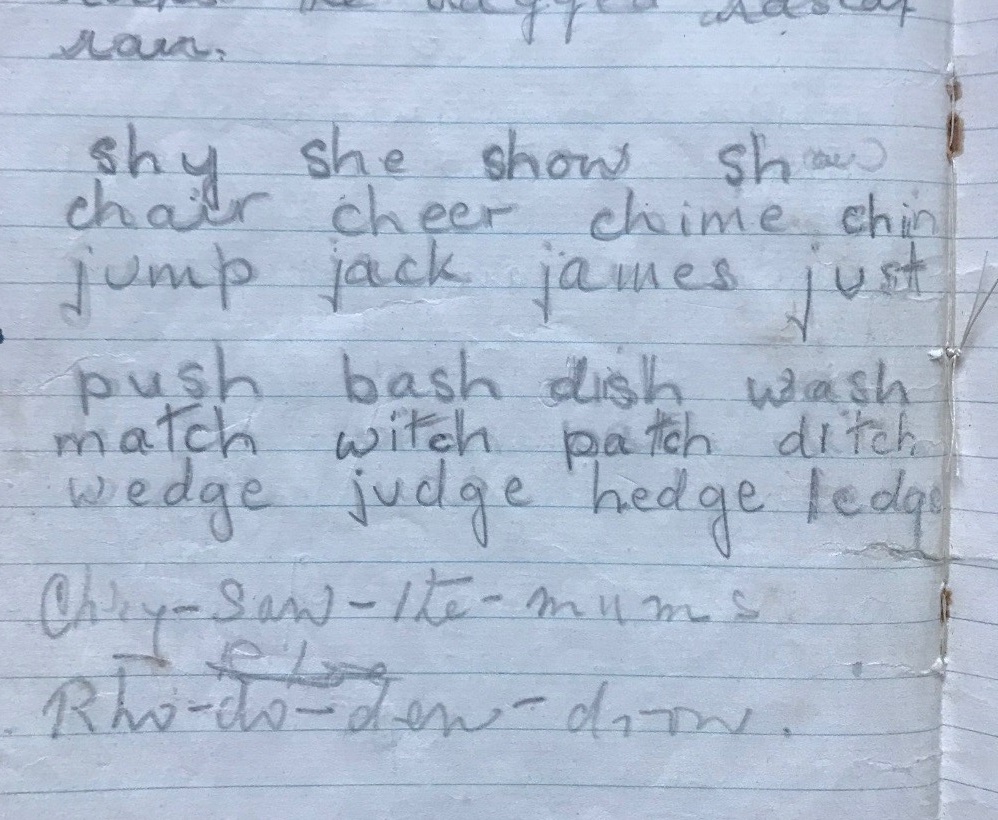 the ragged rascal
ran.
shy she show sh
chair cheer chime chin
jump jack james just
push bash dish wash
match witch patch ditch
wedge judge hedge ledge
Chry-San-The-mums
Rho-do-den-dron.